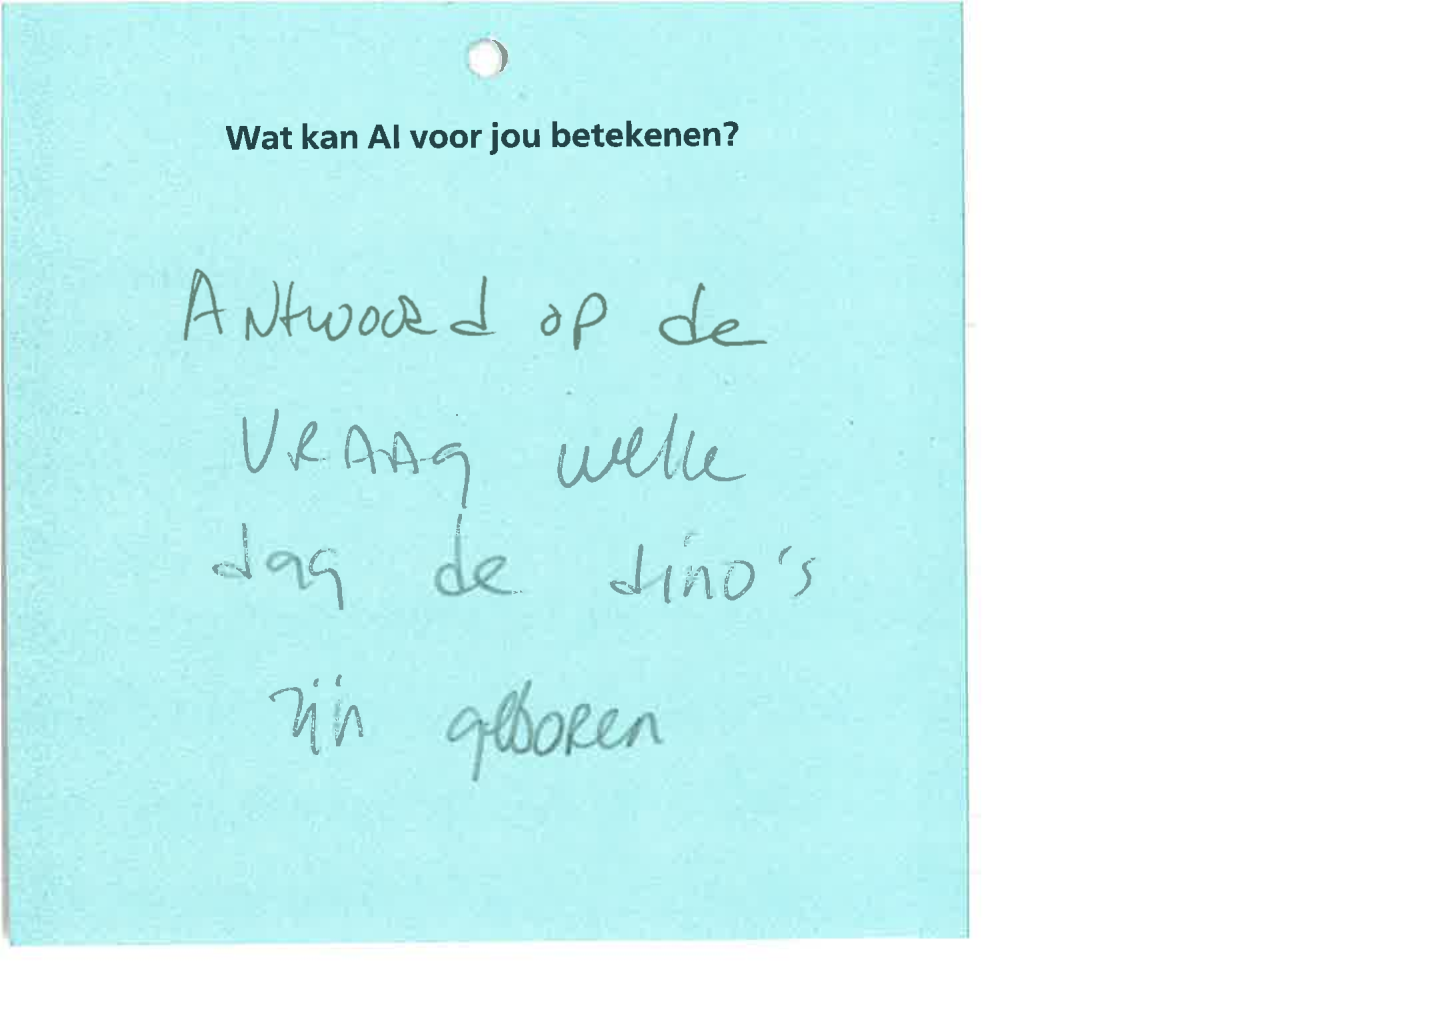 Wat kan AI voor jou betekenen?
Antwoord op de
vraag welke
dag de dino's
zijn geboren